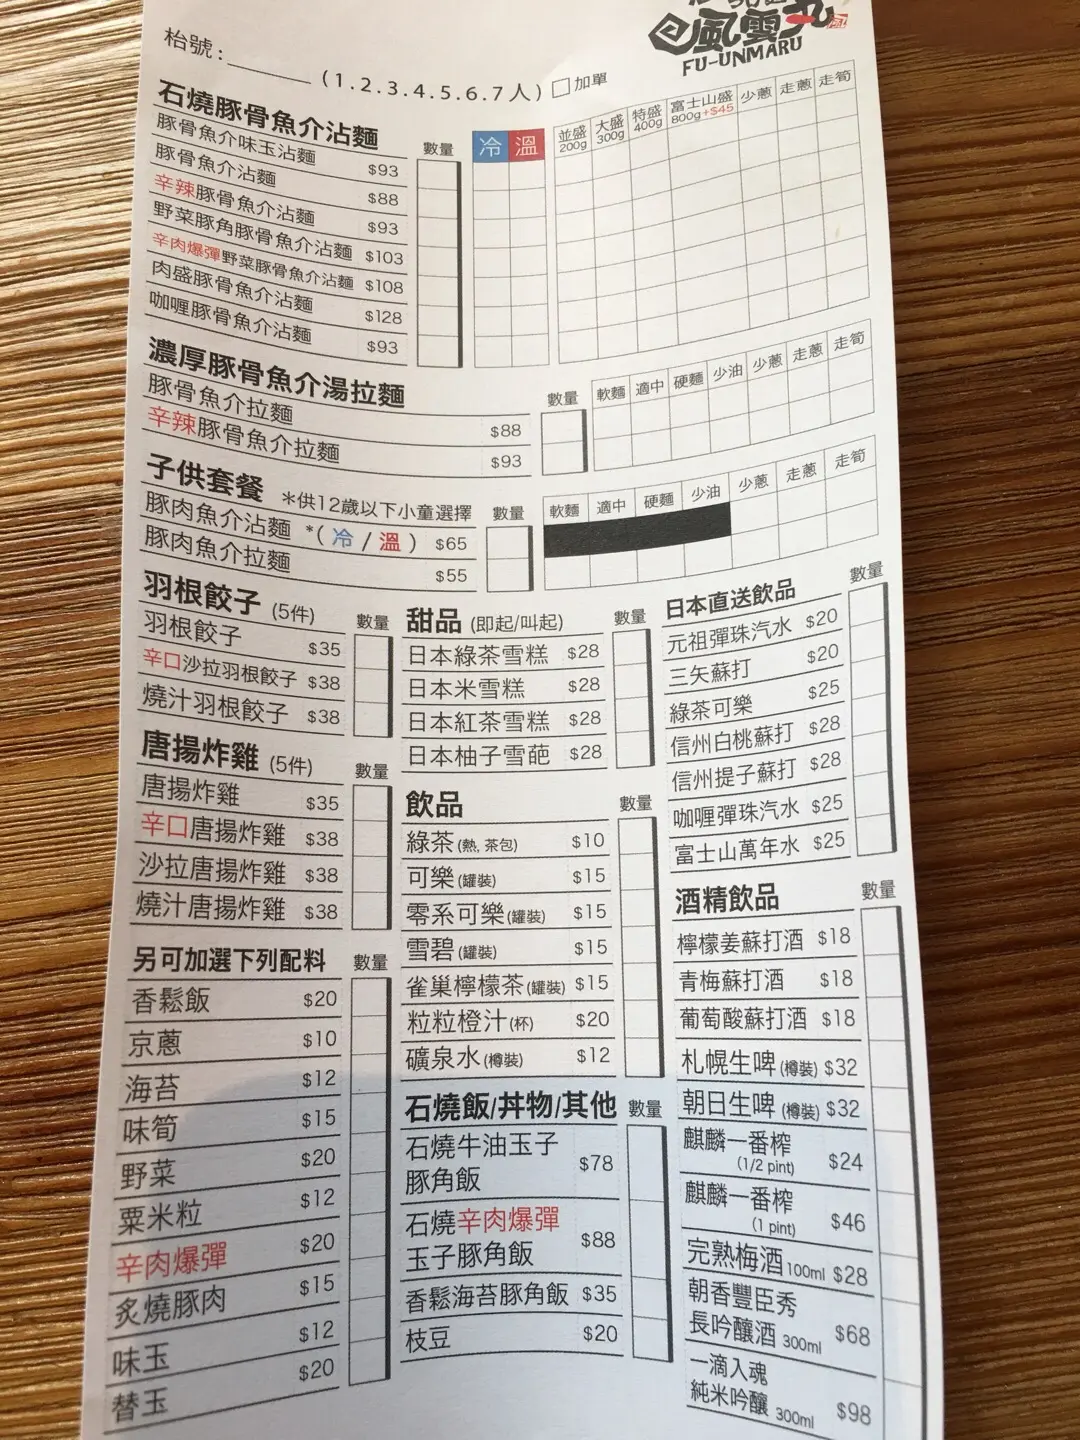 風雲丸
FU-UNMARU
枱號:
(1.2.3.4.5.6.7人) 加單
石燒豚骨魚介沾麵 數量 冷 溫 並盛200g 大盛300g 特盛400g 富士山盛800g+$45 少蔥 走蔥 走筍
豚骨魚介味玉沾麵 $93
豚骨魚介沾麵 $88
辛辣豚骨魚介沾麵 $93
野菜豚角豚骨魚介沾麵 $103
辛肉爆彈野菜豚骨魚介沾麵 $108
肉盛豚骨魚介沾麵 $128
咖喱豚骨魚介沾麵 $93
濃厚豚骨魚介湯拉麵 數量 軟麵 適中 硬麵 少油 少蔥 走蔥 走筍
豚骨魚介拉麵 $88
辛辣豚骨魚介拉麵 $93
子供套餐 *供12歲以下小童選擇 數量 軟麵 適中 硬麵 少油 少蔥 走蔥 走筍
豚肉魚介沾麵 *(冷/溫) $65
豚肉魚介拉麵 $55
羽根餃子 (5件) 數量
羽根餃子 $35
辛口沙拉羽根餃子 $38
燒汁羽根餃子 $38
唐揚炸雞 (5件) 數量
唐揚炸雞 $35
辛口唐揚炸雞 $38
沙拉唐揚炸雞 $38
燒汁唐揚炸雞 $38
另可加選下列配料 數量
香鬆飯 $20
京蔥 $10
海苔 $12
味筍 $15
野菜 $20
粟米粒 $12
辛肉爆彈 $20
炙燒豚肉 $15
味玉 $12
替玉 $20
甜品 (即起/叫起) 數量
日本綠茶雪糕 $28
日本米雪糕 $28
日本紅茶雪糕 $28
日本柚子雪葩 $28
飲品 數量
綠茶(熱,茶包) $10
可樂(罐裝) $15
零系可樂(罐裝) $15
雪碧(罐裝) $15
雀巢檸檬茶(罐裝) $15
粒粒橙汁(杯) $20
礦泉水(樽裝) $12
石燒飯/丼物/其他 數量
石燒牛油玉子
豚角飯 $78
石燒辛肉爆彈
玉子豚角飯 $88
香鬆海苔豚角飯 $35
枝豆 $20
日本直送飲品 數量
元祖彈珠汽水 $20
三矢蘇打 $20
綠茶可樂 $25
信州白桃蘇打 $28
信州提子蘇打 $28
咖喱彈珠汽水 $25
富士山萬年水 $25
酒精飲品 數量
檸檬姜蘇打酒 $18
青梅蘇打酒 $18
葡萄酸蘇打酒 $18
札幌生啤(樽裝) $32
朝日生啤(樽裝) $32
麒麟一番榨
(1/2 pint) $24
麒麟一番榨
(1 pint) $46
完熟梅酒100ml $28
朝香豐臣秀
長吟釀酒 300ml $68
一滴入魂
純米吟釀 300ml $98